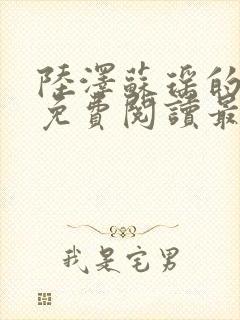 陸澤蘇瑤的
免費閱讀最
我是宅男